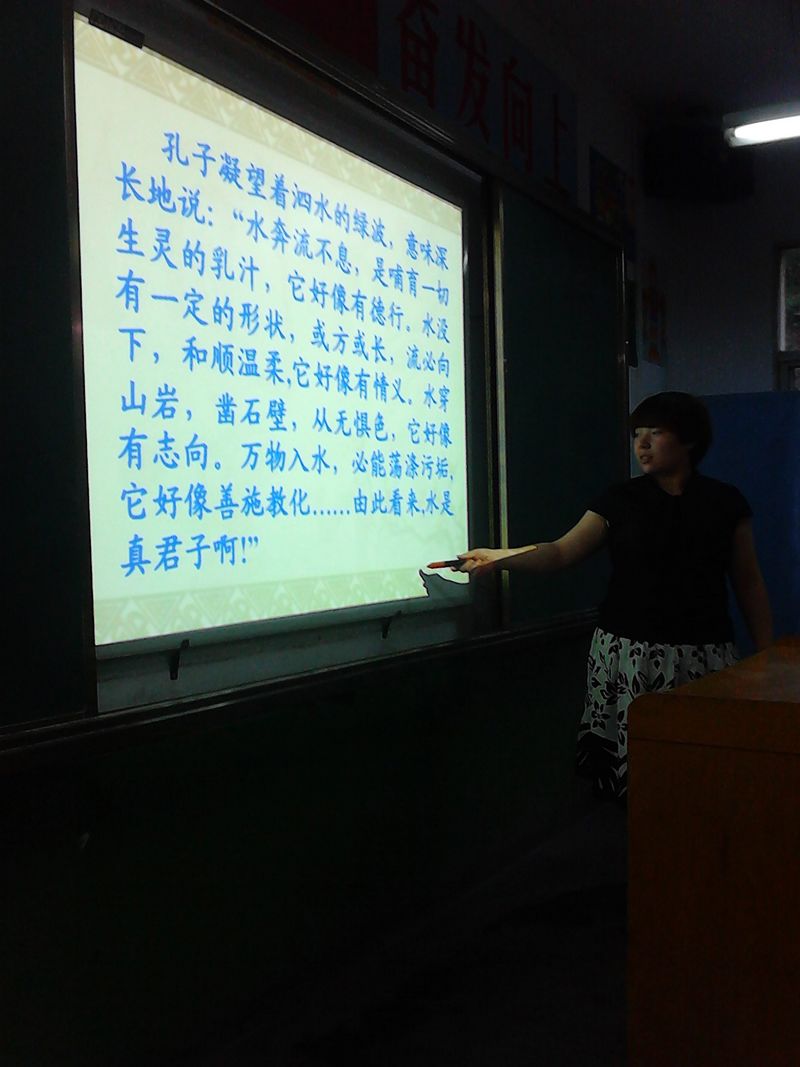 奋发向上
孔子凝望着泗水的绿波，意味深
长地说：“水奔流不息，是哺育一切
生灵的乳汁，它好像有德行。水没
有一定的形状，或方或长，流必向
下，和顺温柔,它好像有情义。水穿
山岩，凿石壁，从无惧色，它好像
有志向。万物入水，必能荡涤污垢,
它好像善施教化……由此看来,水是
真君子啊!”